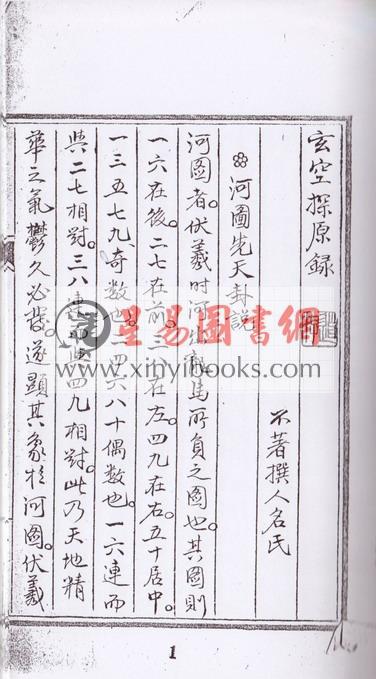 玄空探原録
不著撰人名氏
河图先天卦説
河图者。伏羲时河出龍馬所負之图也。其图則
一六在後。二七在前。三八在左。四九在右。五十居中。
一三五七九、奇数也。二四六八十偶数也。一六連而
與二七相对。三八連而與四九相对。此乃天地精
華之氣鬱久必發。遂顯其象於河图。伏羲
星易圖書網
www.xinyibooks.com
1